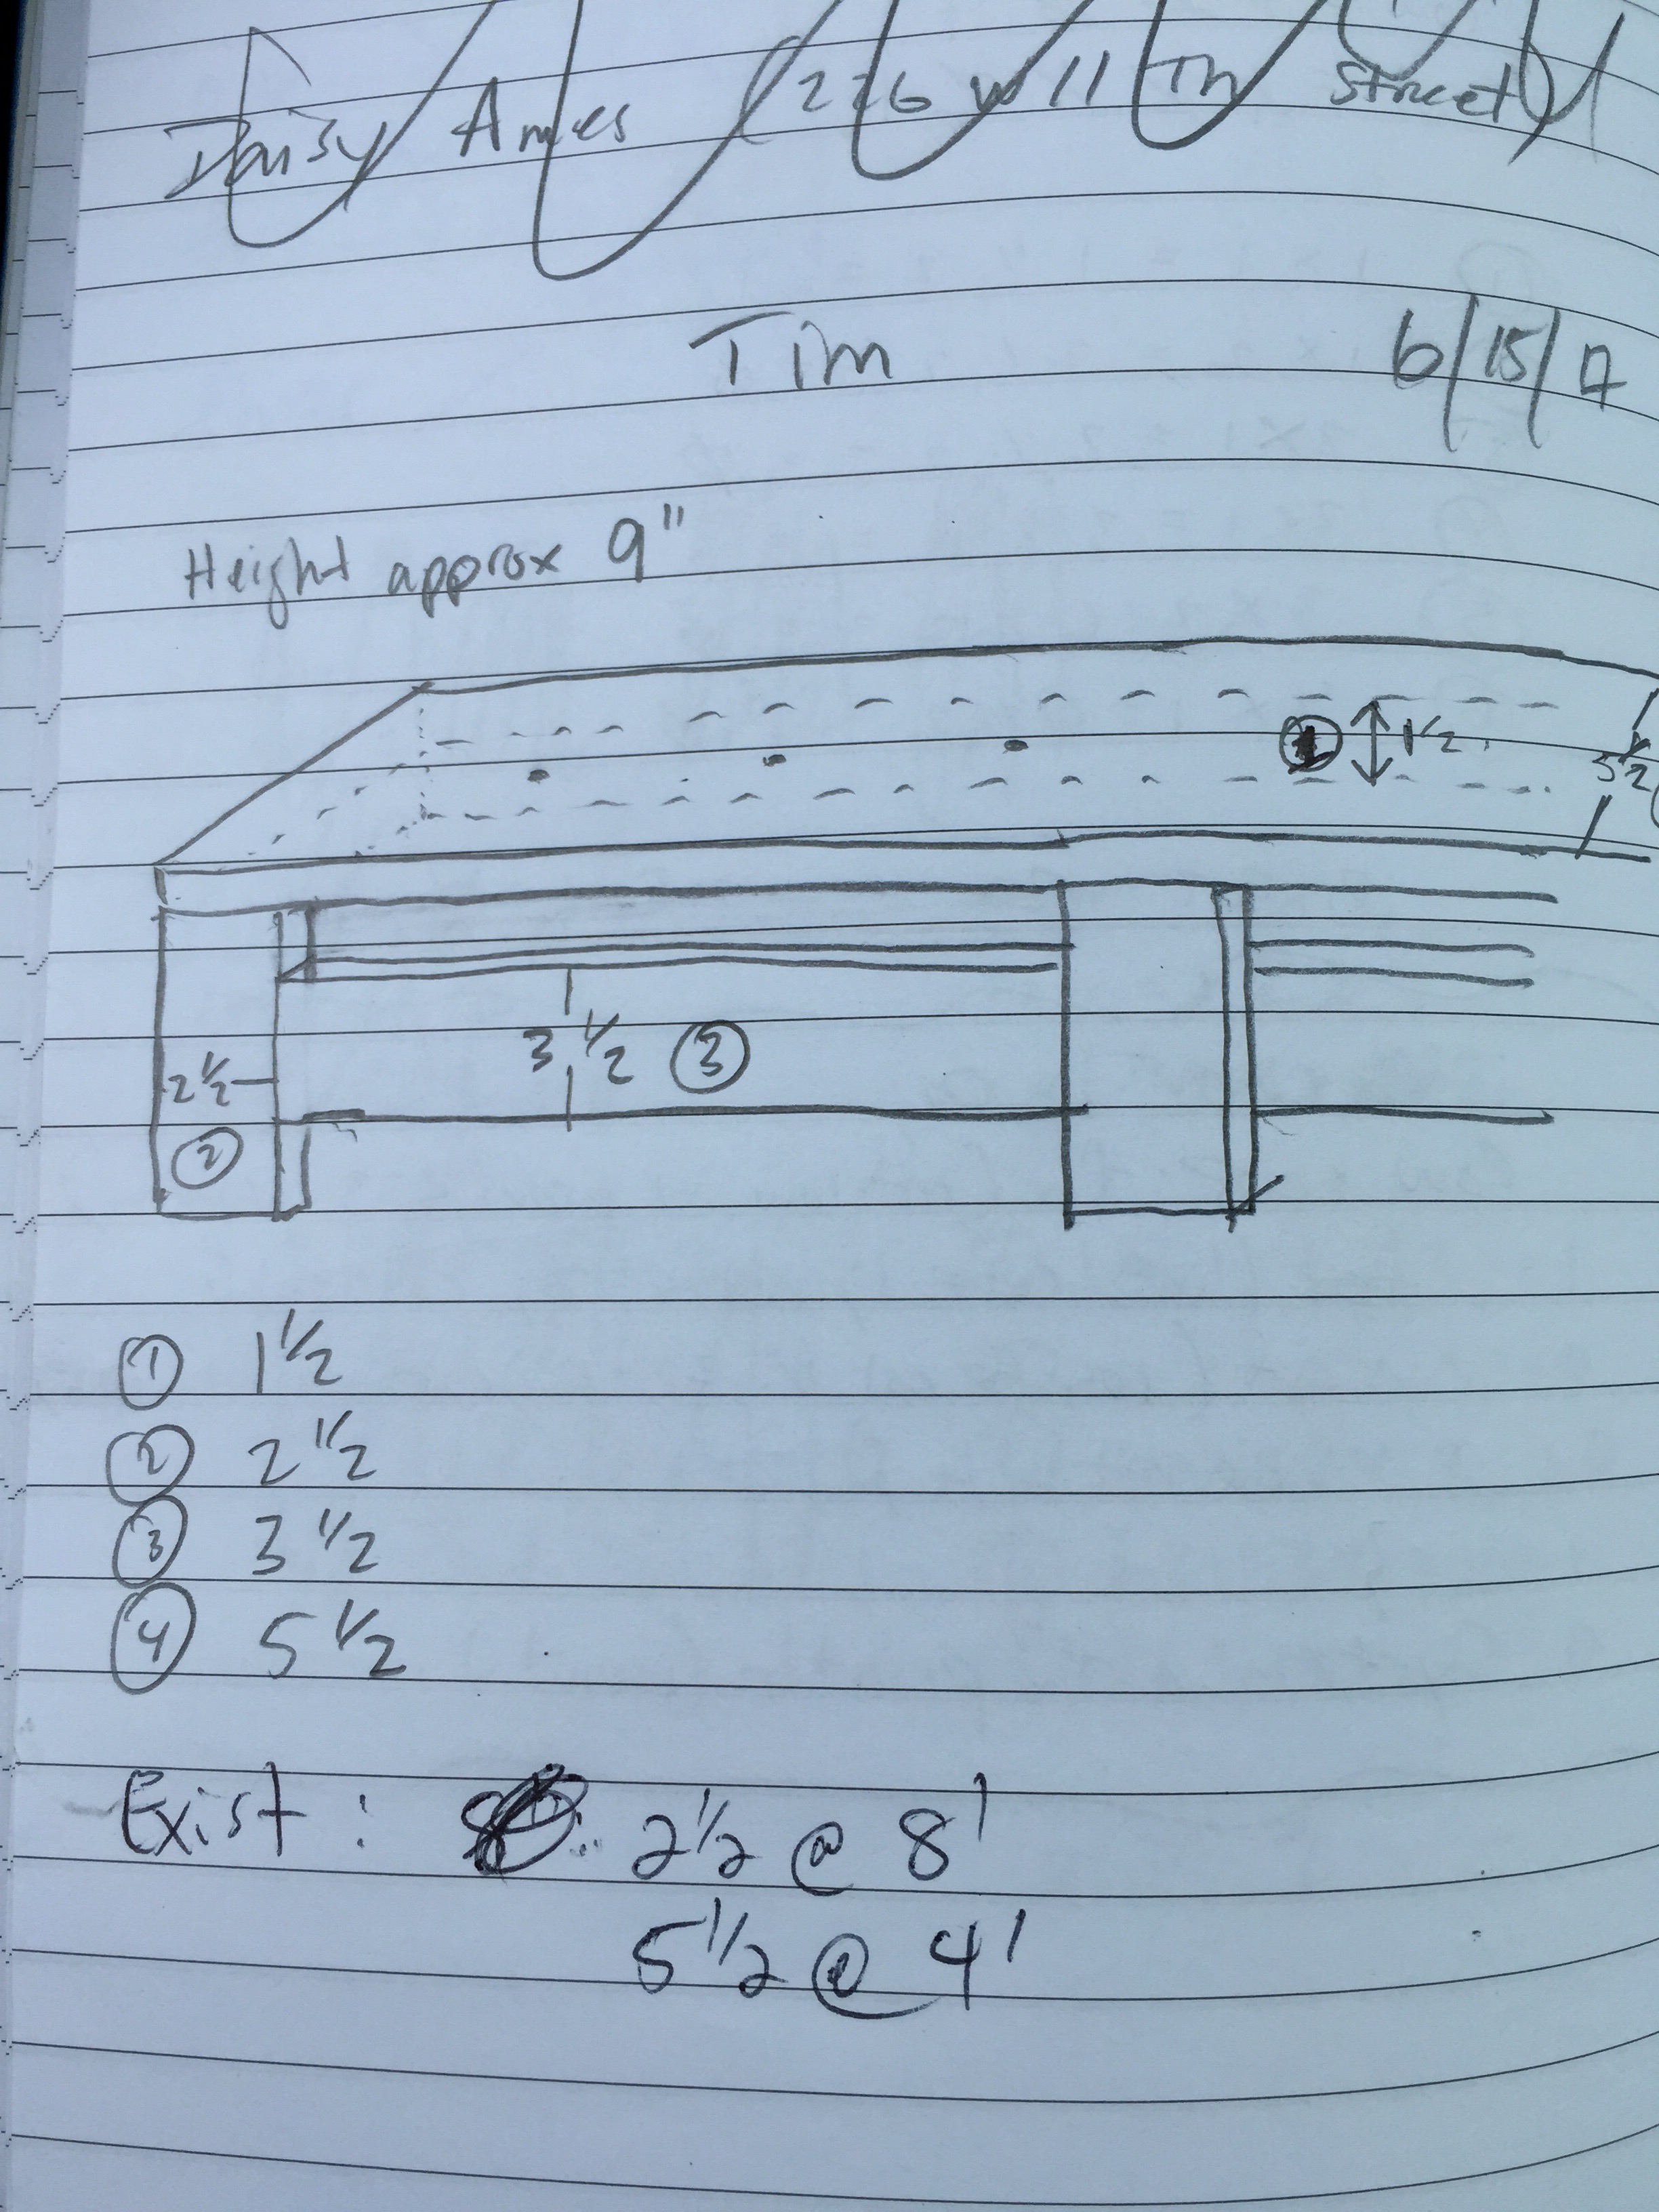 Daisy Ames (226 W 11 Th Street)
Tim 6/15/17
Height approx 9"
① 1½
5½
3½ ③
2½
②
① 1½
② 2½
③ 3½
④ 5½
Exist: 2½ @ 8'
5½ @ 4'